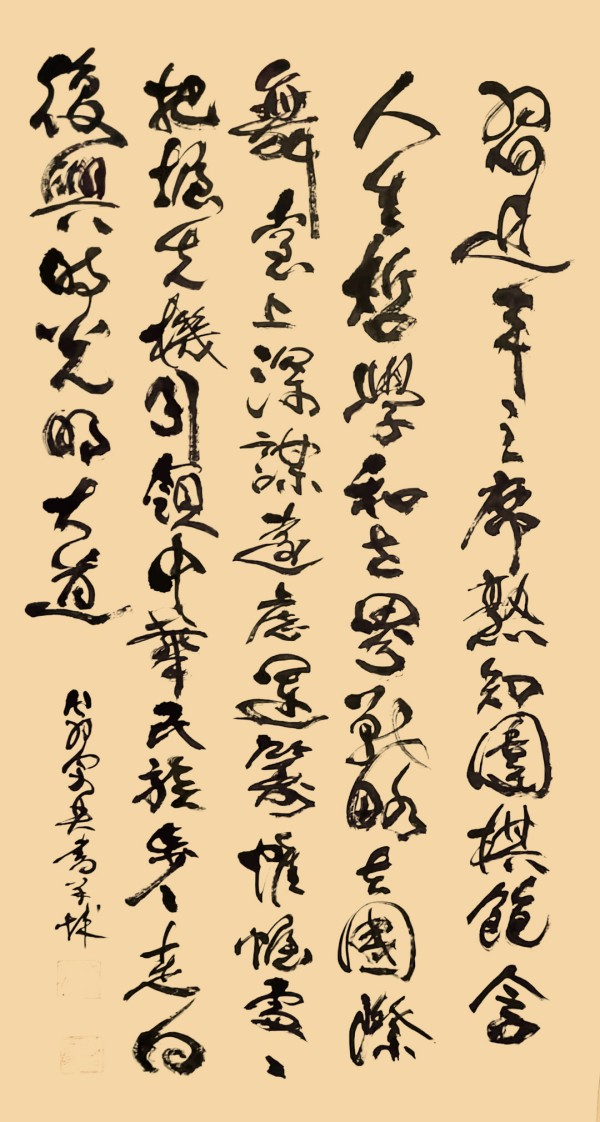 習近平主席熟知圍棋飽含
人生哲學和世界戰略在國際
舞臺上深謀遠慮運籌帷幄處々
把握先機引領中華民族步々走向
復興的光明大道
書羊城